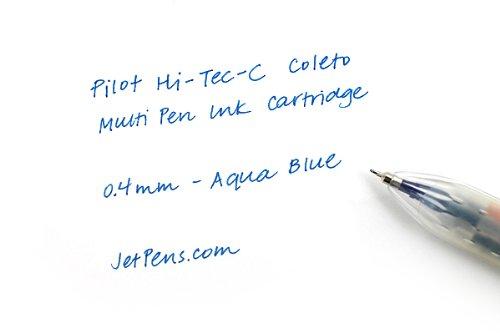 Pilot Hi-Tec-C Coleto
Multi Pen Ink Cartridge
0.4mm - Aqua Blue
JetPens.com